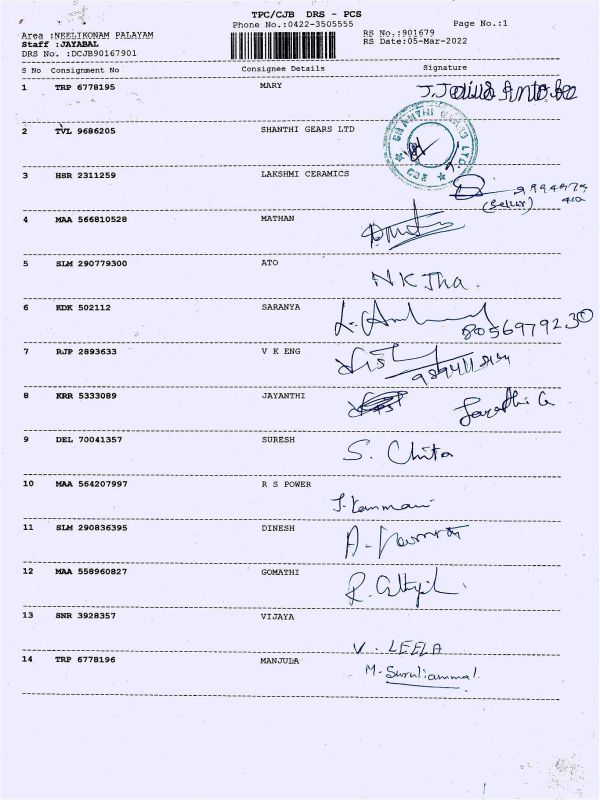 TPC/CJB DRS - PCS
Phone No.:0422-3505555
Page No.:1
Area :NEELIKONAM PALAYAM
RS No.:901679
Staff :JAYABAL
RS Date:05-Mar-2022
DRS No. :DCJB90167901
S No Consignment No Consignee Details Signature
1 TRP 6778195 MARY
2 TVL 9686205 SHANTHI GEARS LTD
3 HSR 2311259 LAKSHMI CERAMICS
4 MAA 566810528 MATHAN
5 SLM 290779300 ATO
NKJha.
6 KDK 502112 SARANYA
8056979230
7 RJP 2893633 V K ENG
8 KRR 5333089 JAYANTHI
9 DEL 70041357 SURESH
S. Chita
10 MAA 564207997 R S POWER
11 SLM 290836395 DINESH
12 MAA 558960827 GOMATHI
13 SNR 3928357 VIJAYA
V. LEELA
14 TRP 6778196 MANJULA
M. Suruliammal.